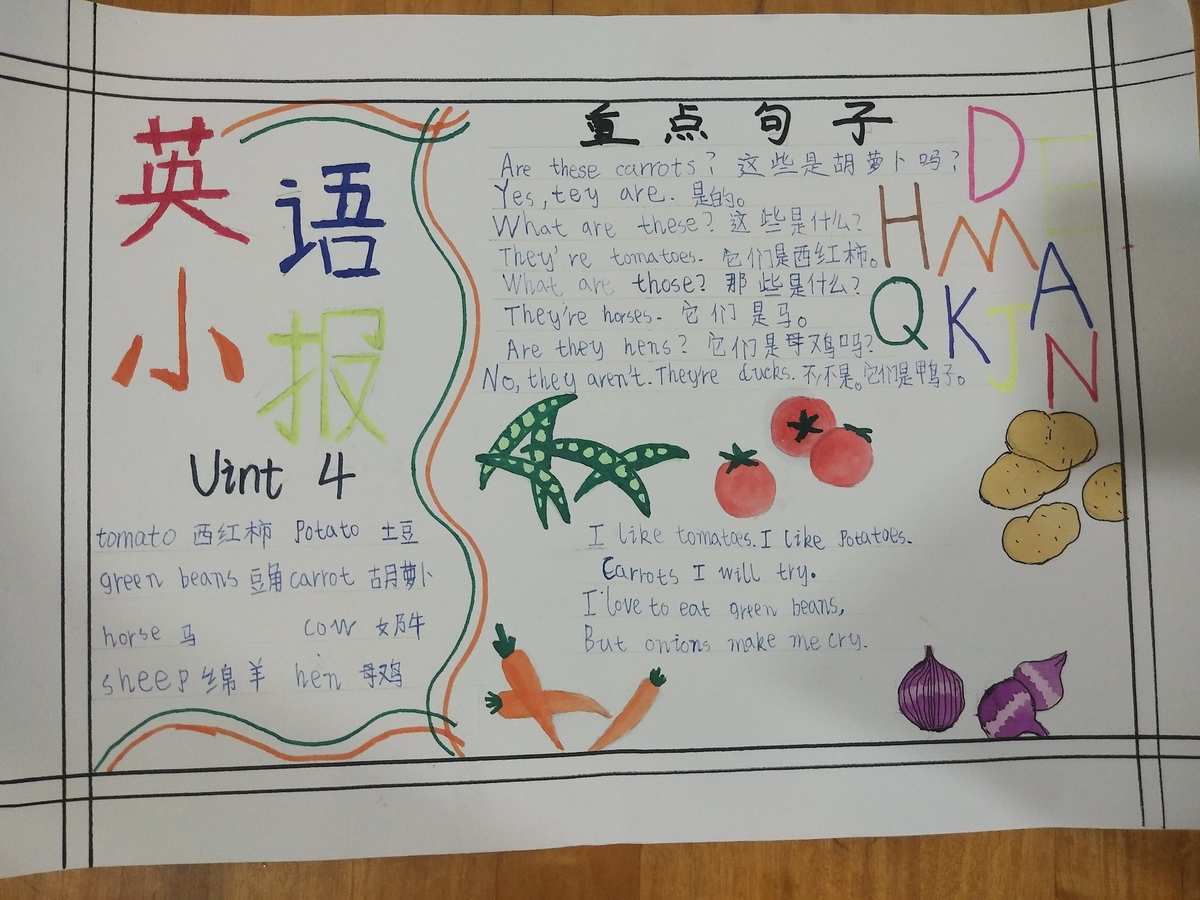 英语
小报
Uint 4
tomato 西红柿 Potato 土豆
green beans 豆角 carrot 胡萝卜
horse 马 cow 奶牛
sheep 绵羊 hen 母鸡
重点句子
Are these carrots? 这些是胡萝卜吗?
Yes, tey are. 是的。
What are these? 这些是什么?
They're tomatoes. 它们是西红柿。
What are those? 那些是什么?
They're horses. 它们是马。
Are they hens? 它们是母鸡吗?
No, they aren't. They're ducks. 不,不是。它们是鸭子。
D E
H M A
Q K J N
I like tomatoes. I like potatoes.
Carrots I will try.
I love to eat green beans,
But onions make me cry.